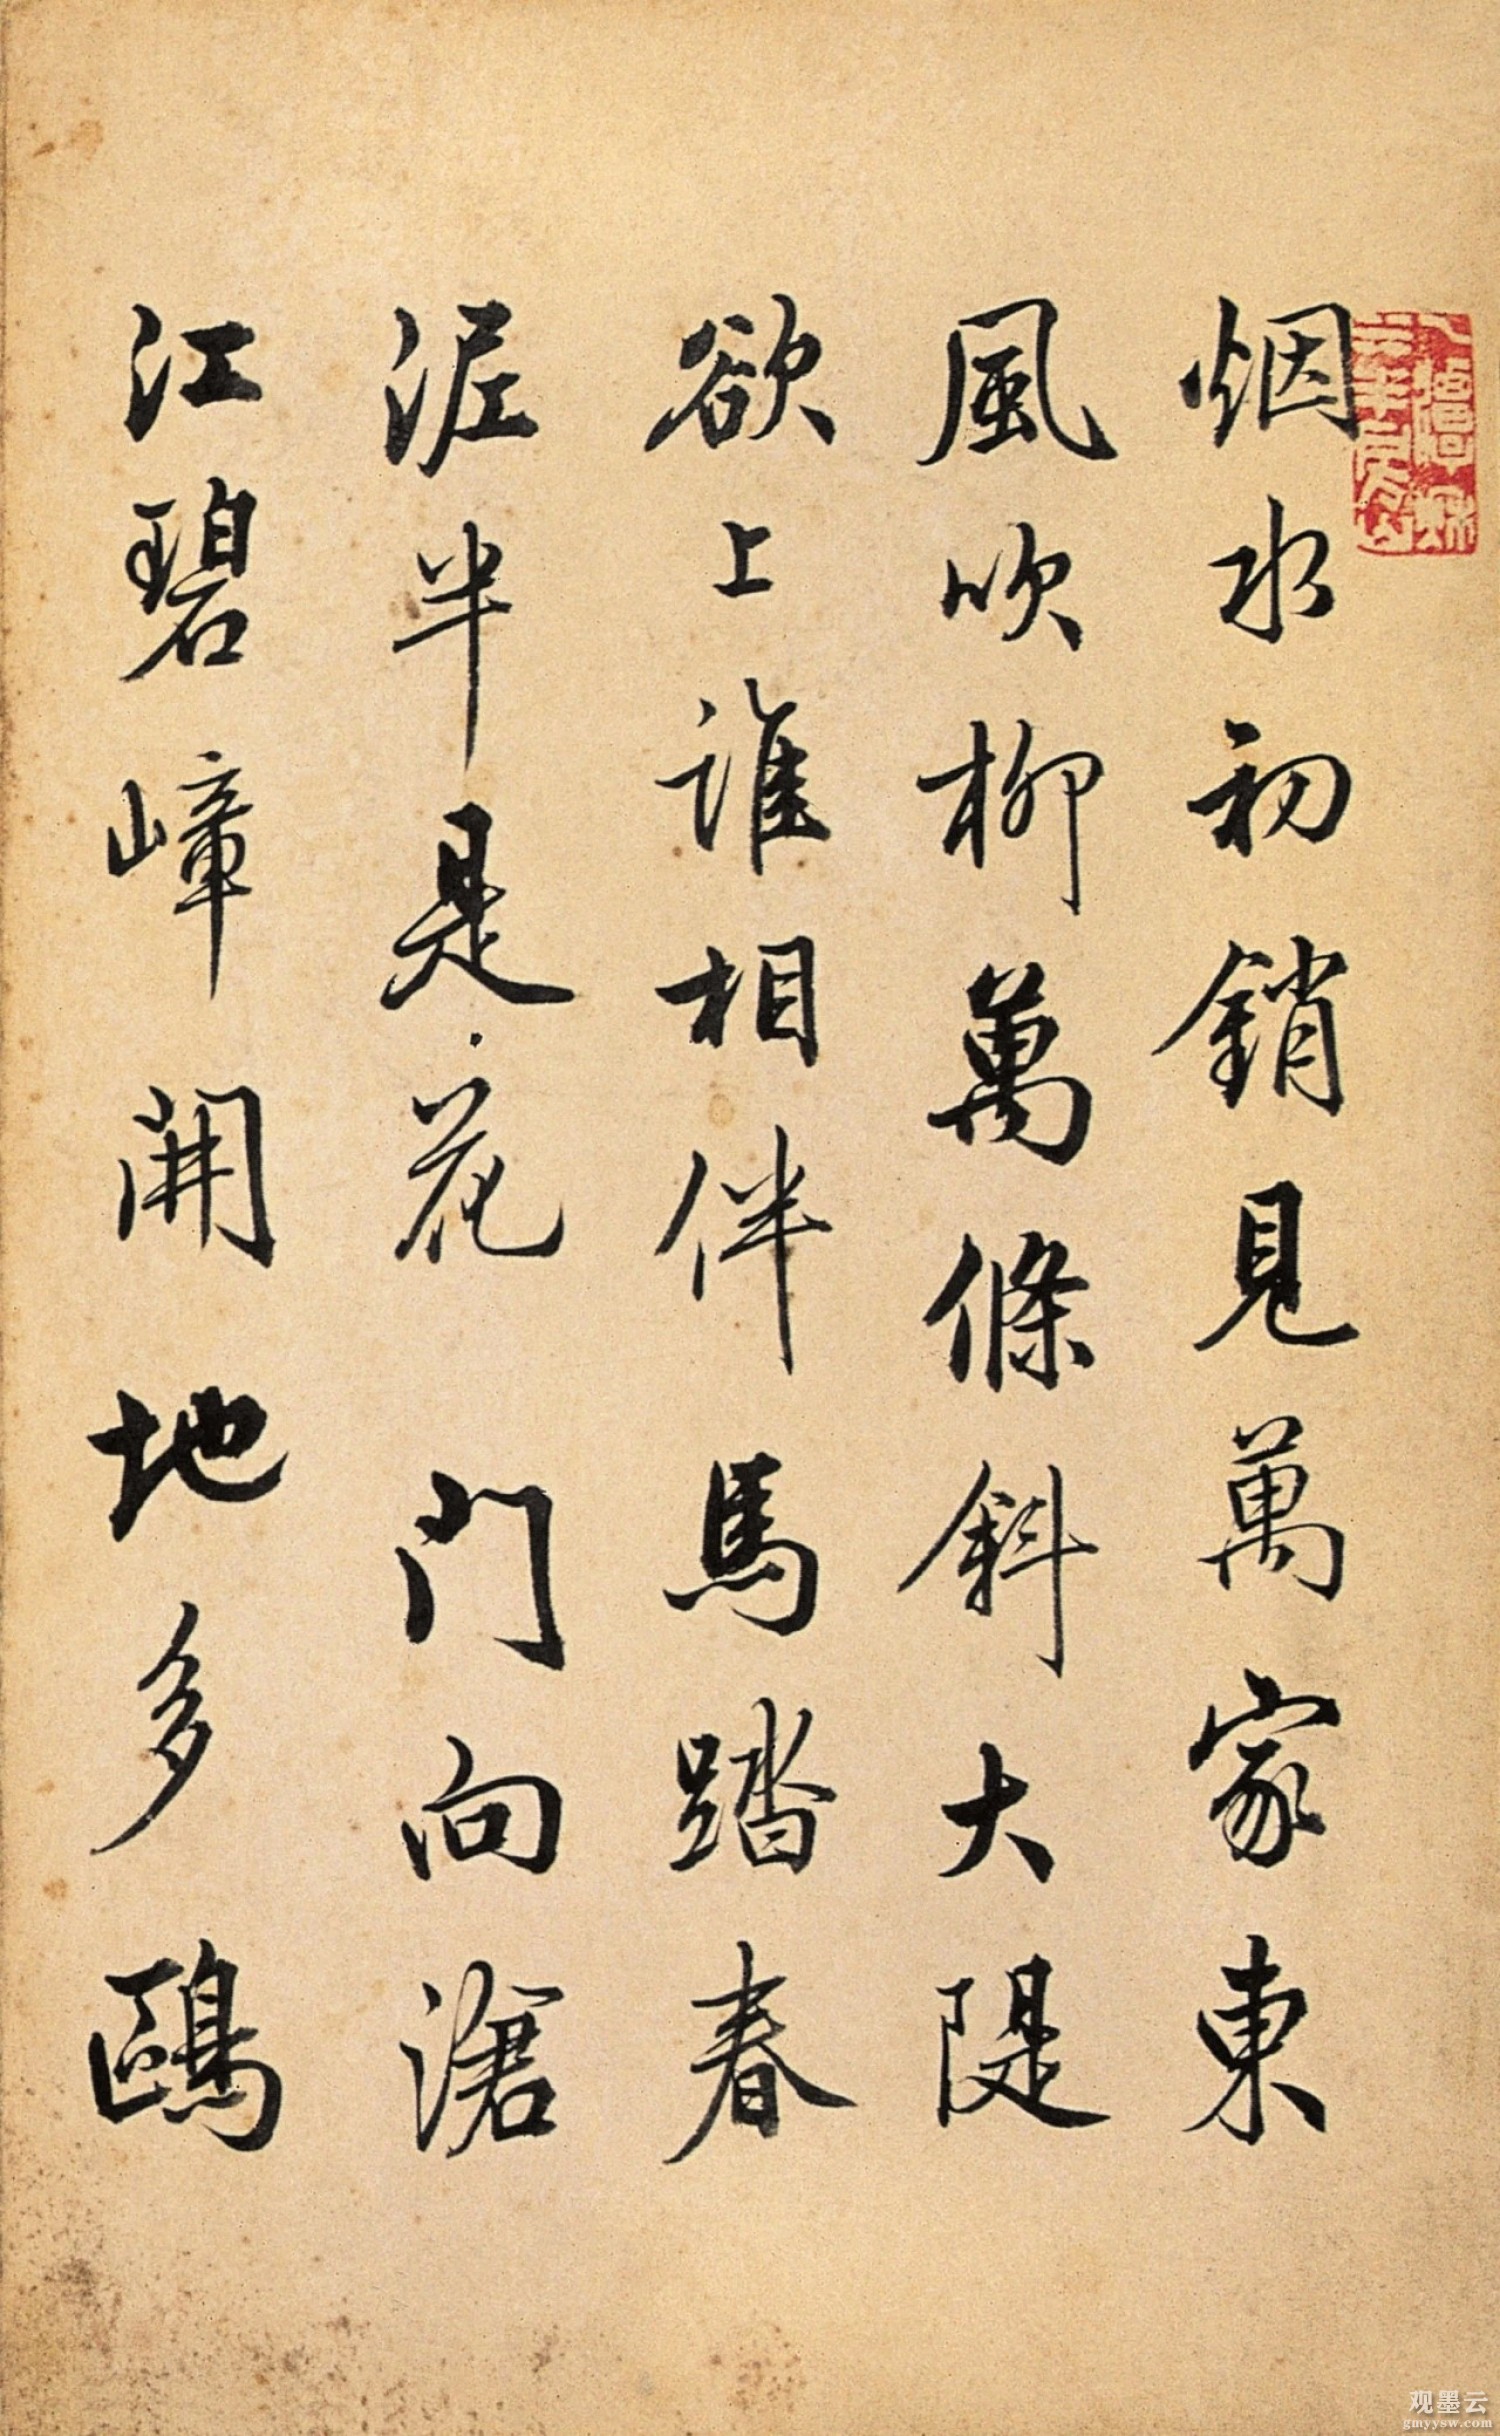 烟水初銷見萬家東
風吹柳萬條斜大隄
欲上誰相伴馬踏春
泥半是花
門向滄
江碧嶂開地多鷗
观墨云
gmyysw.com